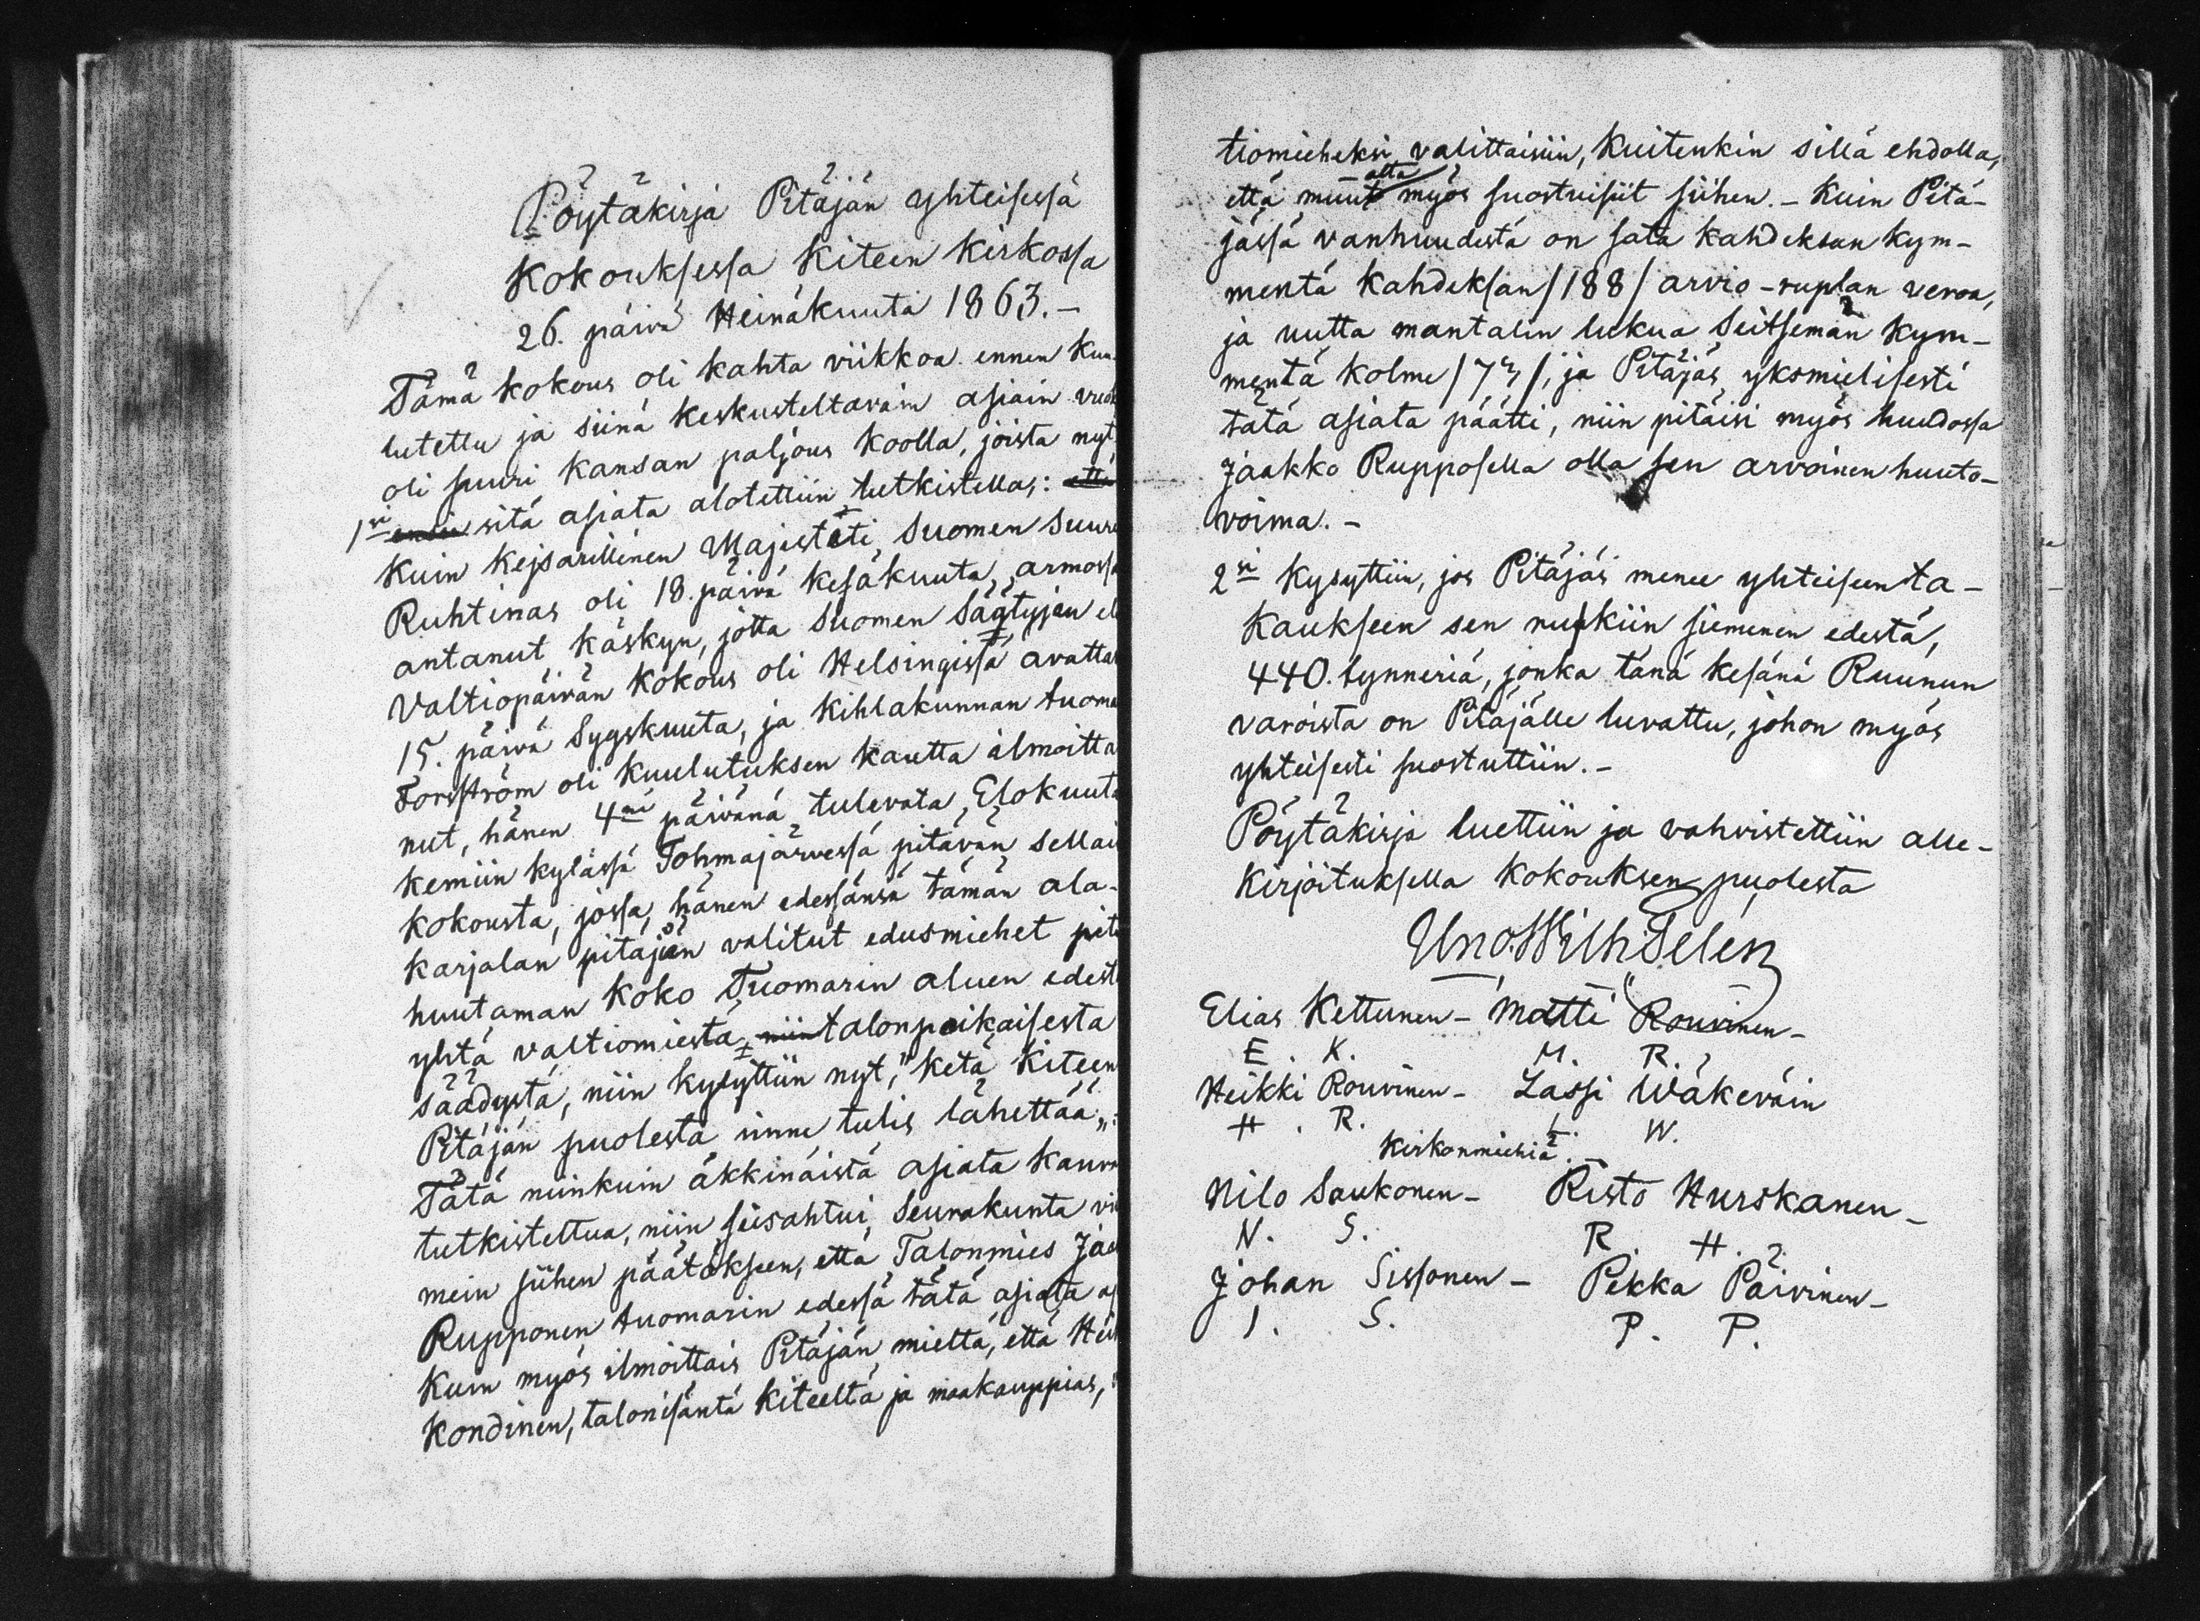 Pöytäkirja Pitäjän yhteisessä
Kokouksessa Kiteen Kirkossa
26. päivä Heinäkuuta 1863.-
Tämä kokous oli kahta viikkoa ennen kuu-
lutettu ja siinä keskusteltavain asiain
oli suuri kansan paljous koolla, joista nyt
1si ensin sitä asiata alotettiin tutkistella,: että
Kuin Kejsarillinen Majistäti, Suomen Suuri
Ruhtinas oli 18. päivä kesäkuuta, armossa
antanut käskyn, jotta Suomen Säätyjän el
Valtiopäivän kokous oli Helsingissä avatta
15. päivä Sygskuuta, ja Kihlakunnan tuoma
Forsström oli kuulutuksen kautta ilmoitta
nut, hänen 4nä päivänä tulevata Elokuuta
Kemiin kylässä Tohmajärvessä pitävän sellai
kokousta, jossa, hänen edessänsä tämän ala-
karjalan pitäjän valitut edusmiehet pit
huutaman koko Tuomarin aluen edest
yhtä valtiomiestä, niin talonpoikaisesta
säädystä, niin kysyttiin nyt, "ketä Kiteen
Pitäjän puolesta sinne tulis lähettää„:
Tätä niinkuin äkkinäistä asiata kauv
tutkistettua, niin seisahtui Seurakunta vii
mein siihen päätökseen, että Talonmies Jaa
Rupponen tuomarin edessä tätä asiata aj
Kuin myös ilmoittais Pitäjän mieltä, että Hei
Kondinen, talonisäntä Kiteeltä ja maakauppias,
tiomieheksi valittaisiin, Kuitenkin sillä ehdolla,
alta
että muut myös suostuisiit siihen.- Kuin Pitä-
jässä vanhuudesta on sata kahdeksan kym-
mentä kahdeksan/188/arvio-ruplan veroa,
ja uutta mantalin lukua Seitsemän kym-
mentä kolme/73/, ja Pitäjäs yksmielisesti
tätä asiata päätti, niin pitäisi myös huudossa
Jaakko Rupposella olla sen arvoinen huuto-
voima.-
2si Kysyttiin, jos Pitäjäs menee yhteiseen ta-
kaukseen sen rukiin siemenen edestä,
440. tynneriä, jonka tänä kesänä Ruunun
varoista on Pitäjälle luvattu, johon myös
yhteisesti suostuttiin.-
Pöytäkirja luettiin ja vahvistettiin alle-
kirjoituksella kokouksen puolesta
Uno Wilh Telén
Elias Kettunen- Matti Rouvinen-
E. K. M. R.
Heikki Rouvinen- Lassi Wäkeväin
H. R. L. W.
Kirkonmiehiä.
Nilo Saukonen- Risto Hurskanen-
N. S. R H.
Johan Sissonen- Pekka Päivinen-
J. S. P. P.